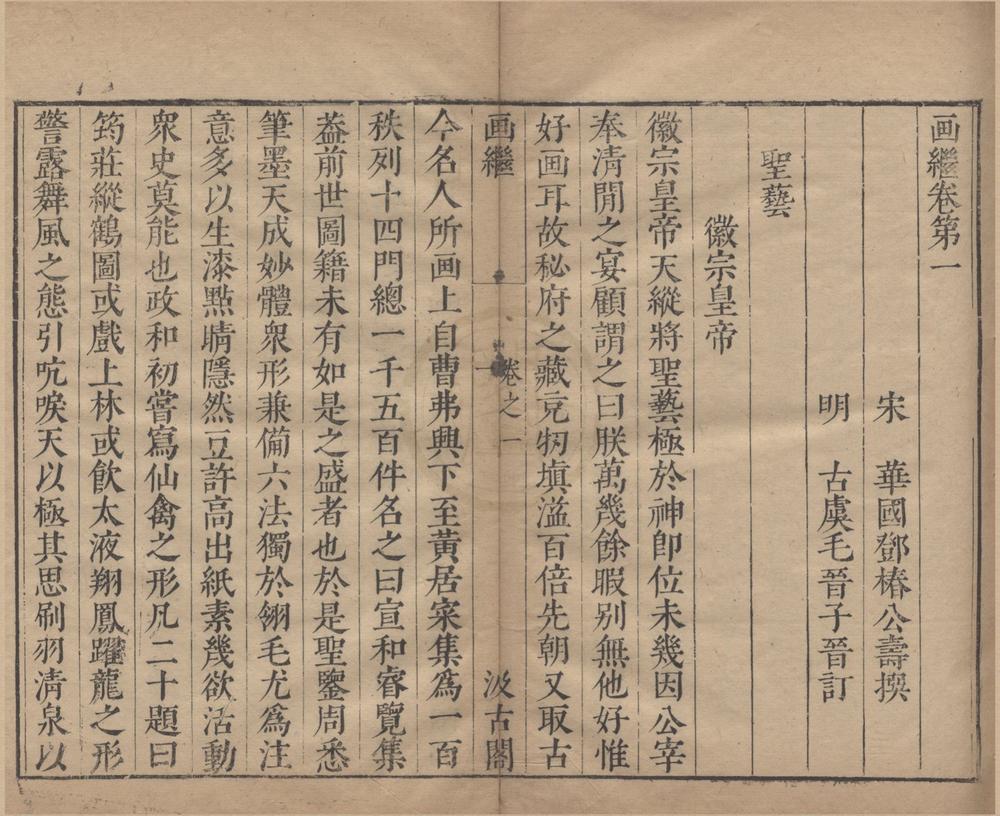 画繼卷第一
宋　華國鄧椿公壽撰
明　古虞毛晉子晉訂
聖藝
徽宗皇帝
徽宗皇帝天縱將聖藝極於神卽位未幾因公宰
奉清閒之宴顧謂之曰朕萬幾餘暇别無他好惟
好画耳故秘府之藏充牣塡溢百倍先朝又取古
画繼　卷之一　一　汲古閣
今名人所画上自曹弗興下至黃居寀集爲一百
秩列十四門總一千五百件名之曰宣和睿覽集
葢前世圖籍未有如是之盛者也於是聖鑒周悉
筆墨天成妙體衆形兼備六法獨於翎毛尤爲注
意多以生漆點睛隱然豆許高出紙素幾欲活動
衆史莫能也政和初嘗寫仙禽之形凡二十題曰
筠莊縱鶴圖或戲上林或飮太液翔鳳躍龍之形
警露舞風之態引吭唳天以極其思刷羽清泉以